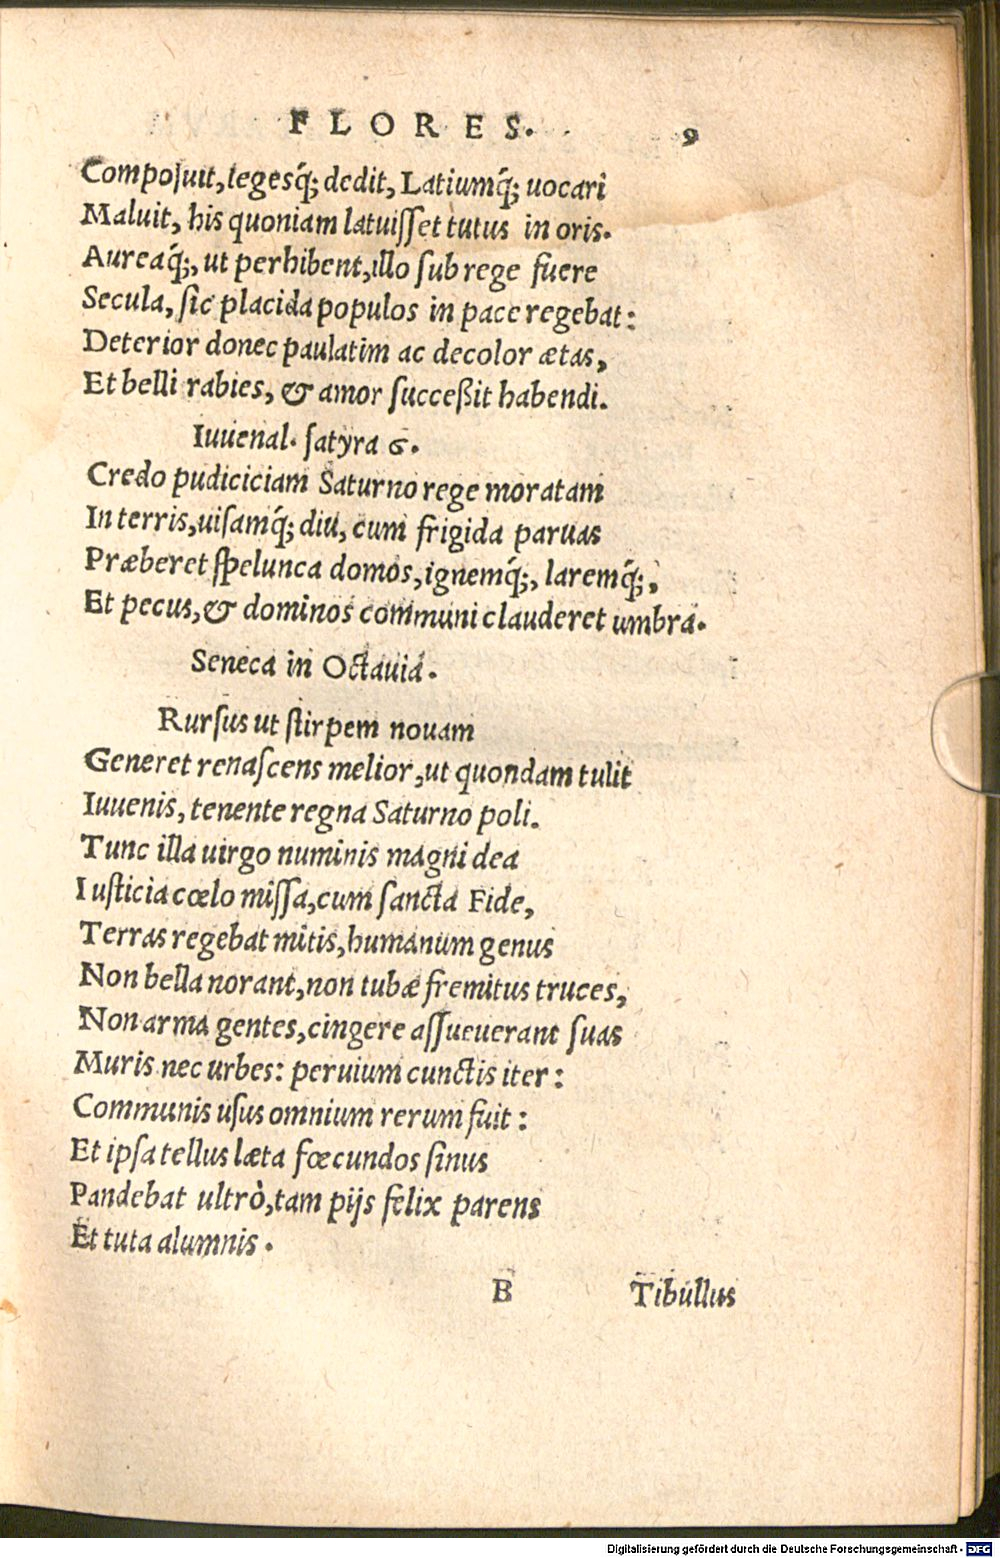 FLORES. 9
Compoſuit, legesq́; dedit, Latiumq́; uocari
Maluit, his quoniam latuiſſet tutus in oris.
Aureaq́;, ut perhibent, illo ſub rege fuere
Secula, ſic placida populos in pace regebat:
Deterior donec paulatim ac decolor ætas,
Et belli rabies, & amor ſucceßit habendi.
Iuuenal. ſatyra 6.
Credo pudiciciam Saturno rege moratam
In terris, uiſamq́; diu, cum frigida paruas
Præberet ſpelunca domos, ignemq́;, laremq́;,
Et pecus, & dominos communi clauderet umbra.
Seneca in Octauia.
Rurſus ut ſtirpem nouam
Generet renaſcens melior, ut quondam tulit
Iuuenis, tenente regna Saturno poli.
Tunc illa uirgo numinis magni dea
Iuſticia cœlo miſſa, cum ſancta Fide,
Terras regebat mitis, humanum genus
Non bella norant, non tubæ fremitus truces,
Non arma gentes, cingere aſſueuerant ſuas
Muris nec urbes: peruium cunctis iter:
Communis uſus omnium rerum fuit:
Et ipſa tellus læta fœcundos ſinus
Pandebat ultrò, tam pijs felix parens
Et tuta alumnis.
B Tibullus
Digitalisierung gefördert durch die Deutsche Forschungsgemeinschaft - DFG